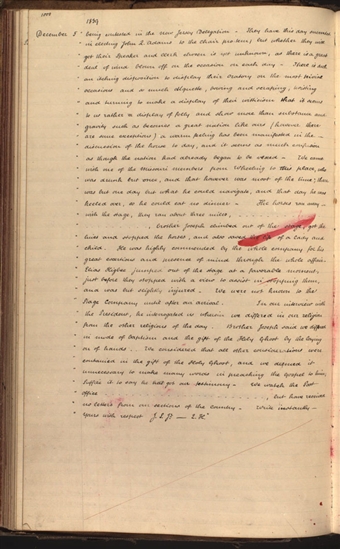 1008
1839
December 5 " being unsettled in the New Jersey Delegation - They have this day succeeded
5. " in electing John Q. Adams to the Chair pro: tem:, but whether they will
" get their Speaker and Clerk chosen is yet unknown, as there is a great
" deal of wind blown off on the occasion on each day - There is such
" an itching disposition to display their oratory on the most trivial
" occasions and so much etiquette, bowing and scraping, twisting
" and turning to make a display of their witticism that it seems
" to us rather a display of folly and show more than substance and
" gravity such as becomes a great nation like ours, (however there
" are some exceptions) a warm feeling has been manifested in the
" discussion of the house to day, and it seems as much confusion
" as though the nation had already began to be vexed - We came
" with one of the Missouri members from Wheeling to this place, who
" was drunk but once, and that however was most of the time; there
" was but one day but what he could navigate, and that day he was
" keeled over, so he could eat no dinner - The horses ran away
" with the stage, they ran about three miles,
" , Brother Joseph climbed out of the stage, got the
" lines and stopped the horses, and also saved the life of a lady and
" child. He was highly commended by the whole company for his
" great exertions and presence of mind through the whole affair.
" Elias Higbee jumped out of the stage at a favorable moment,
" just before they stopped with a view to assist in stopping them,
" and was but slightly injured. We were not known to the
" Stage Company until after an arrival. In our interview with
" the President, he interrogated us wherein we differed in our religion
" from the other religions of the day. Brother Joseph said we differed
" in mode of baptism and the gift of the Holy Ghost by the laying
" on of hands. We considered that all other considerations were
" contained in the gift of the Holy Ghost, and we deemed it
" unnecessary to make many words in preaching the Gospel to him;
" Suffice it to say he has got our testimony - We watch the Post
" office , but have received
" no letters from our sections of the country. Write instantly -
" Yours with respect J. S. Jr - E. H."